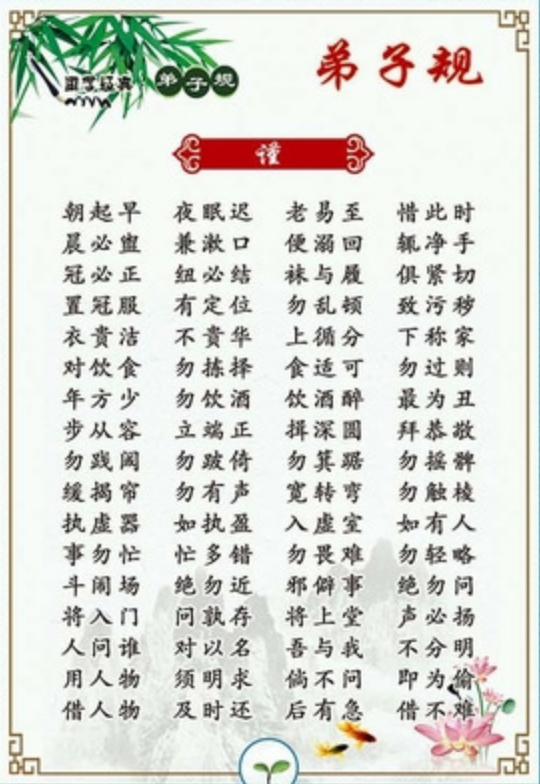 国学经典 弟子规
弟子规
谨
朝起早 夜眠迟 老易至 惜此时
晨必盥 兼漱口 便溺回 辄净手
冠必正 纽必结 袜与履 俱紧切
置冠服 有定位 勿乱顿 致污秽
衣贵洁 不贵华 上循分 下称家
对饮食 勿拣择 食适可 勿过则
年方少 勿饮酒 饮酒醉 最为丑
步从容 立端正 揖深圆 拜恭敬
勿践阈 勿跛倚 勿箕踞 勿摇髀
缓揭帘 勿有声 宽转弯 勿触棱
执虚器 如执盈 入虚室 如有人
事勿忙 忙多错 勿畏难 勿轻略
斗闹场 绝勿近 邪僻事 绝勿问
将入门 问孰存 将上堂 声必扬
人问谁 对以名 吾与我 不分明
用人物 须明求 倘不问 即为偷
借人物 及时还 后有急 借不难